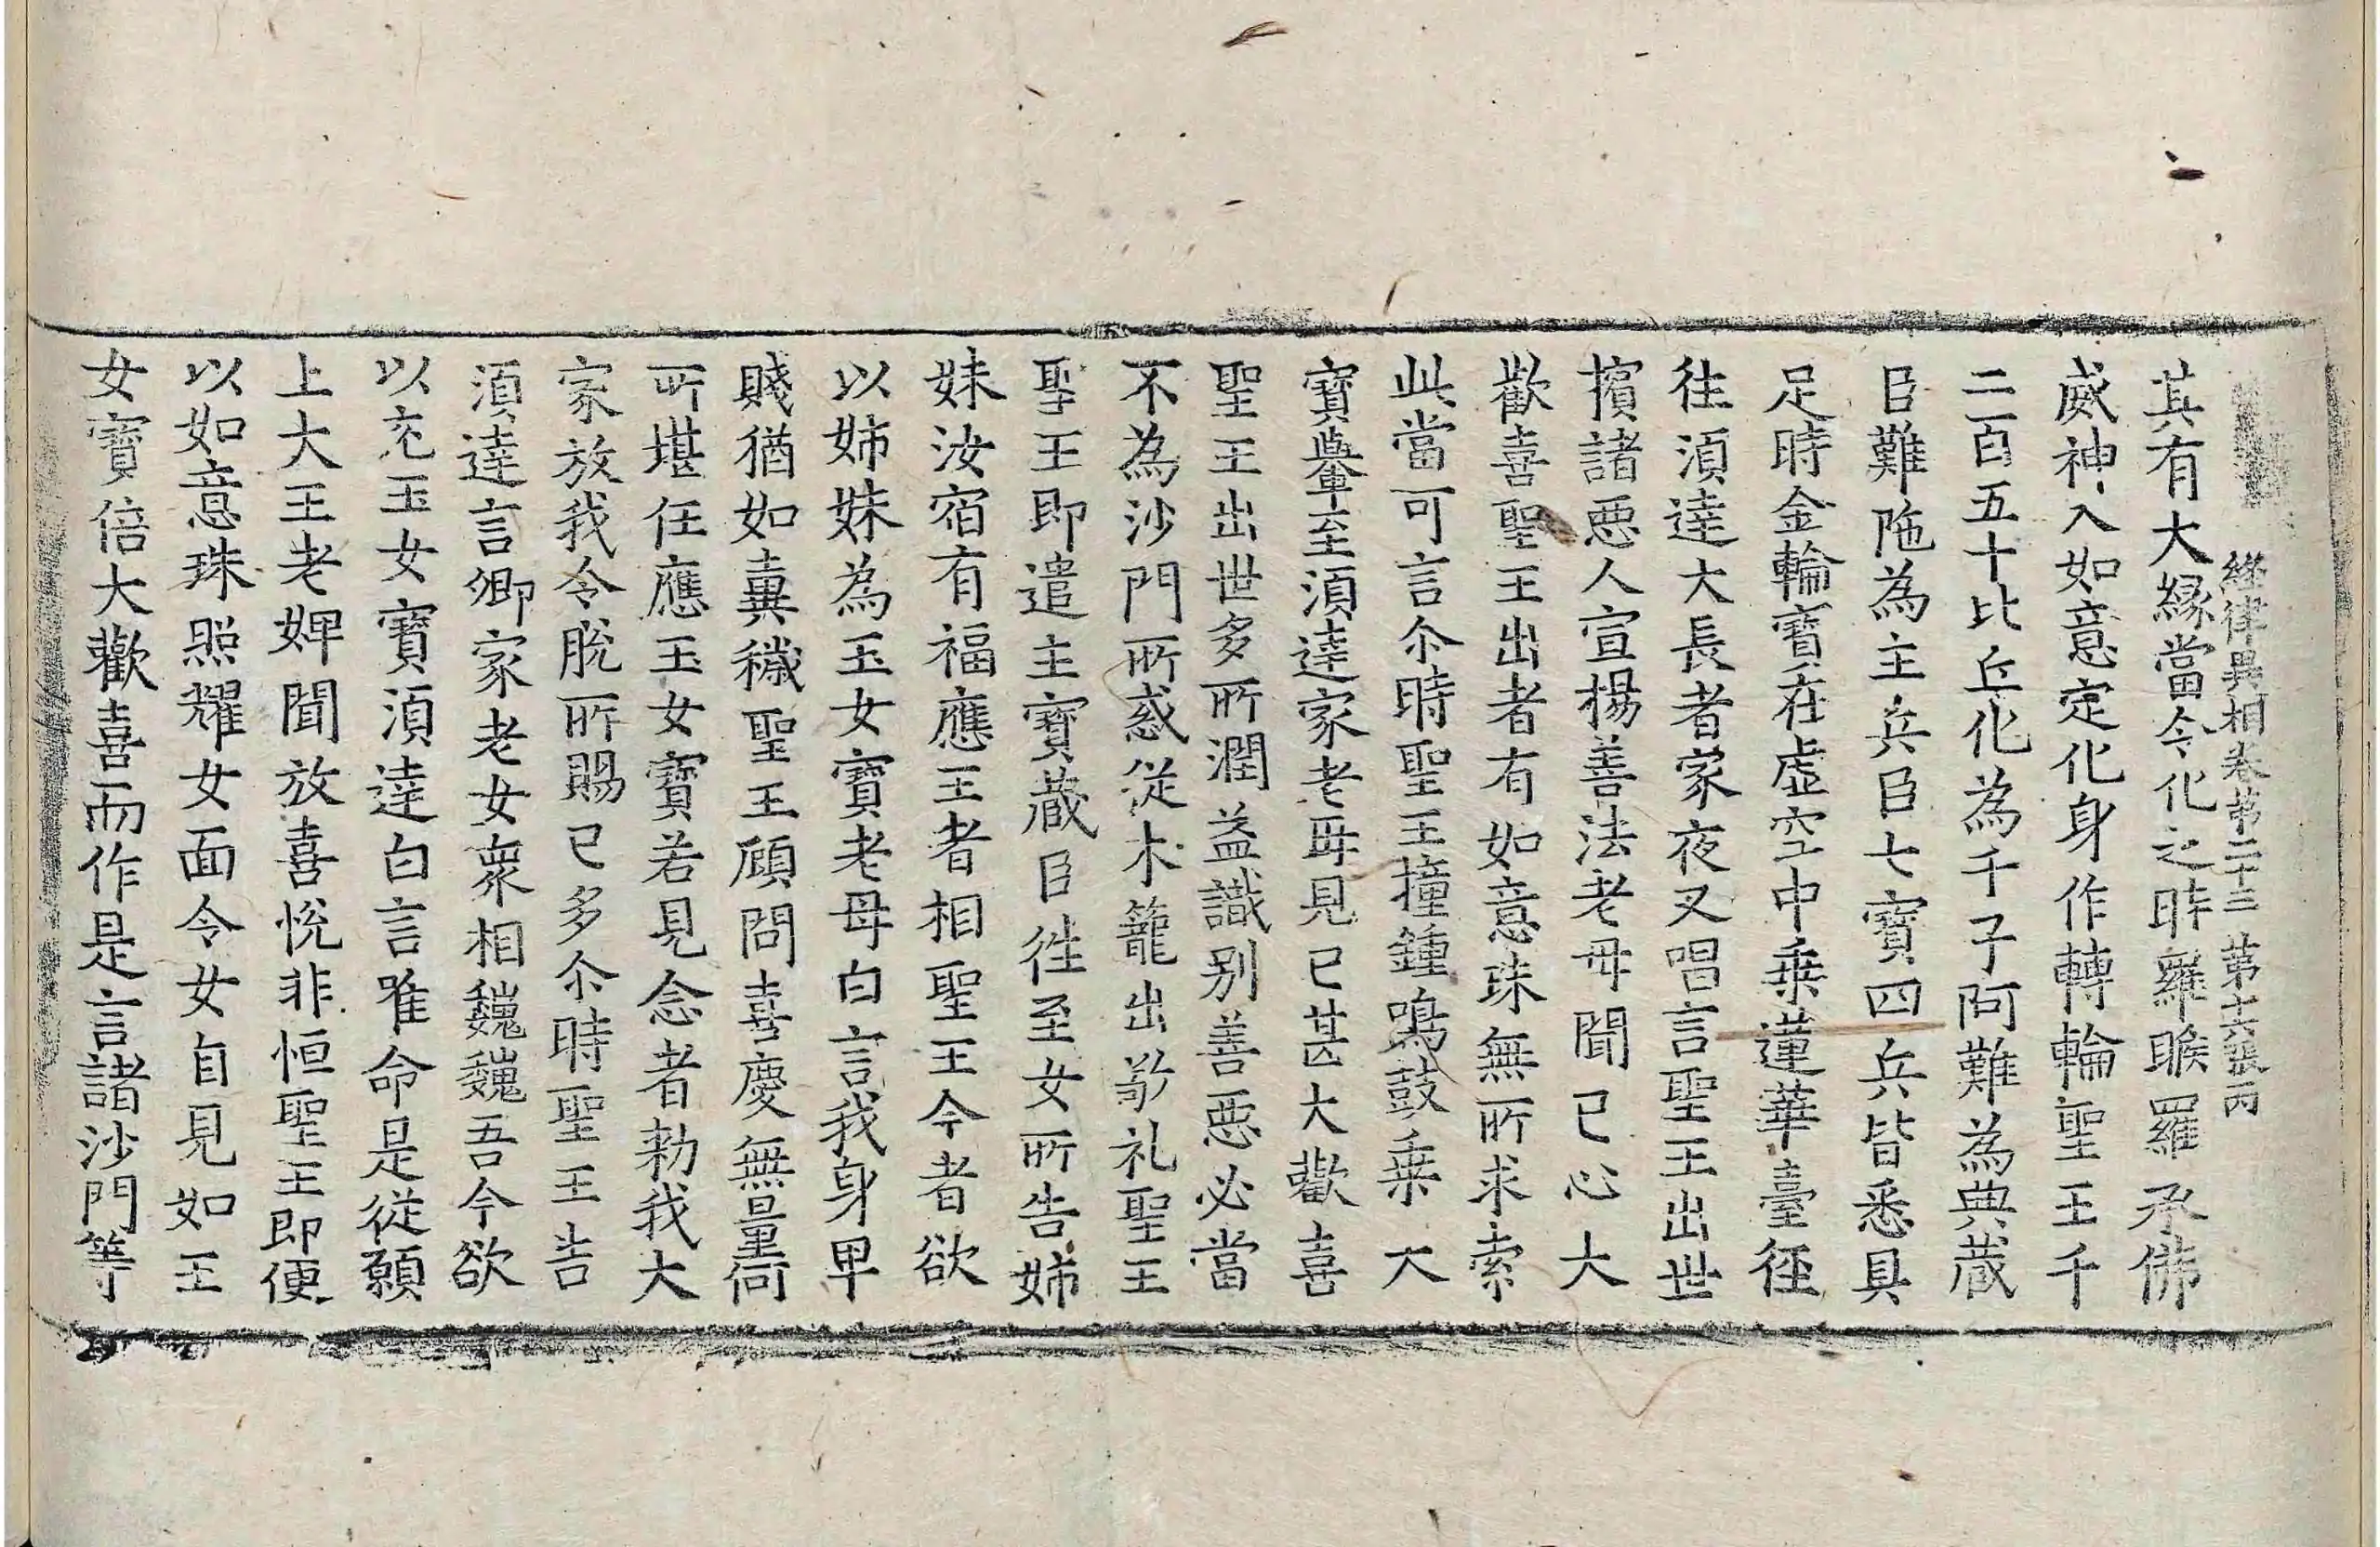 經律異相卷第二十三 第十六張 丙
其有大緣當令化之時羅睺羅承佛
威神入如意定化身作轉輪聖王千
二百五十比丘化為千子阿難為典藏
臣難陁為主兵臣七寶四兵皆悉具
足時金輪寶在虛空中乘蓮華臺徑
往湏達大長者家夜叉唱言聖王出世
擯諸惡人宣楊善法老母聞已心大
歡喜聖王出者有如意珠無所求索
此當可言尒時聖王撞鍾鳴鼓乘大
寶轝至湏達家老母見已甚大歡喜
聖王出世多所潤益識別善惡必當
不為沙門所惑從木籠出敬礼聖王
聖王即遣主寶藏臣往至女所告姊
妹汝宿有福應王者相聖王今者欲
以姊妹為玉女寶老母白言我身卑
賤猶如糞穢聖王顧問喜慶無量何
所堪任應玉女寶若見念者勑我大
家放我令脫所賜已多尒時聖王告
湏達言卿家老女衆相巍巍吾今欲
以充玉女寶湏達白言唯命是從願
上大王老婢聞放喜悅非恒聖王即便
以如意珠照耀女面令女自見如王
女寶倍大歡喜而作是言諸沙門等